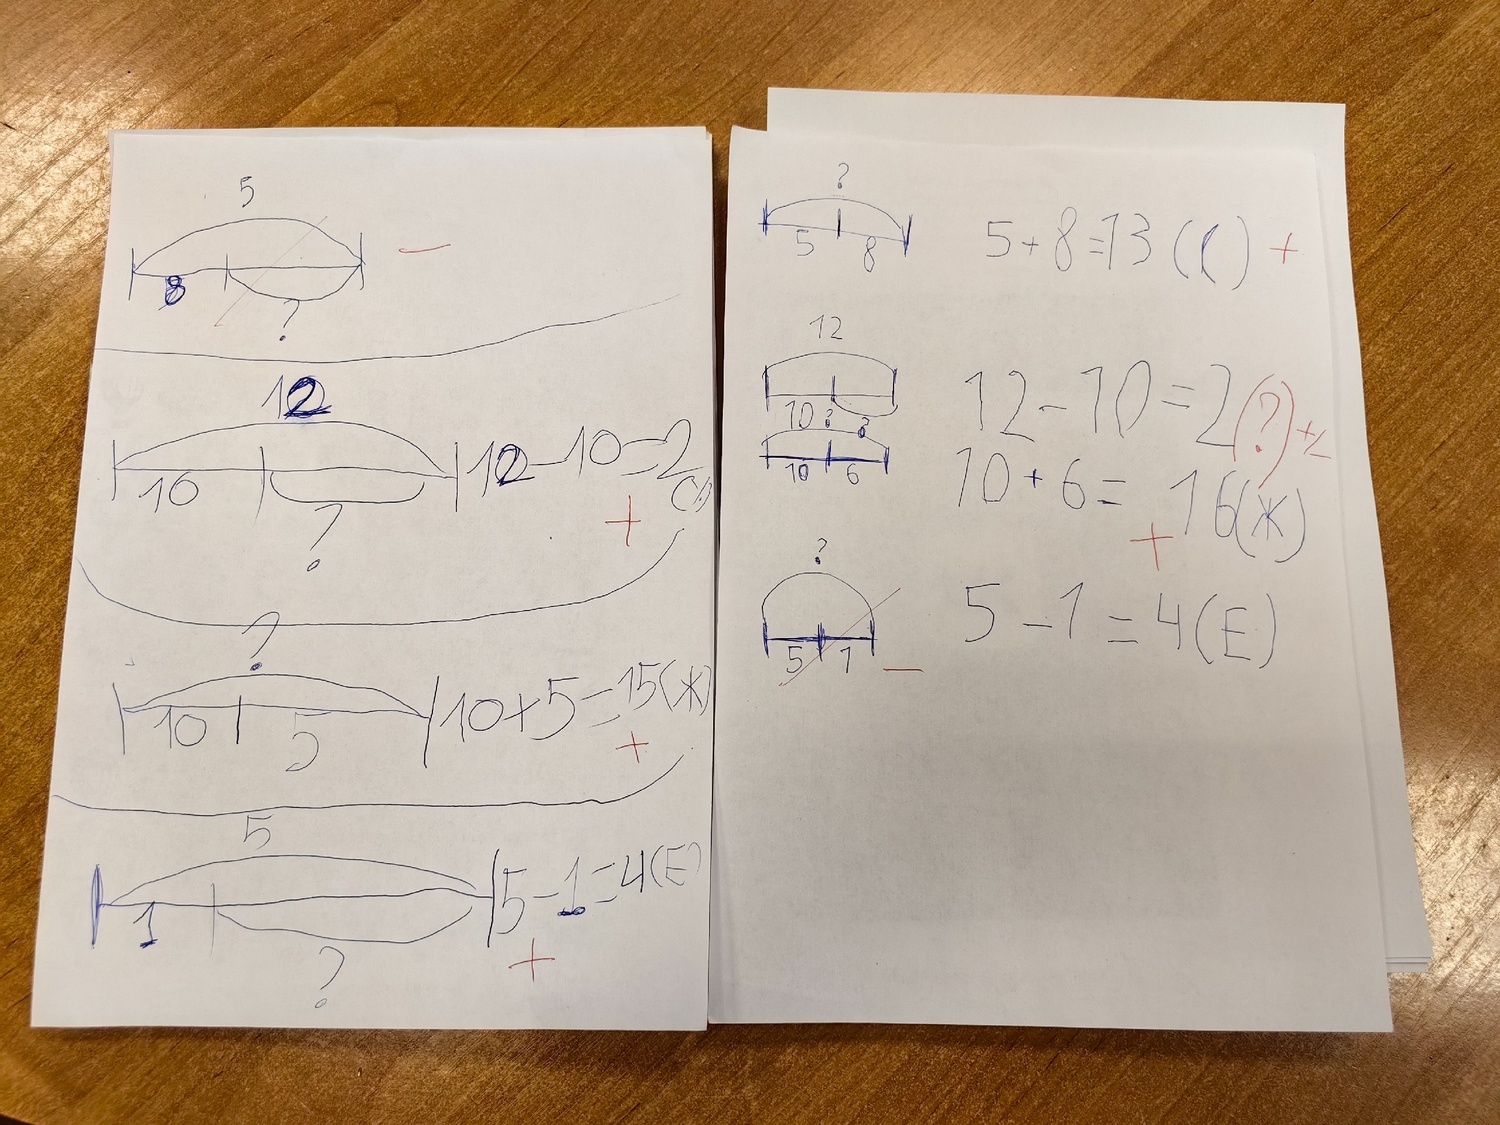 5
8
?
12
10
?
12-10=2
+
?
10 5
10+5=15(Ж)
+
5
1
?
5-1=4(Е)
+
?
5 8
5+8=13
+
12
10 ?
12-10=2(?)
?
10 6
10+6=16(Ж)
+
?
5 1
5-1=4(Е)